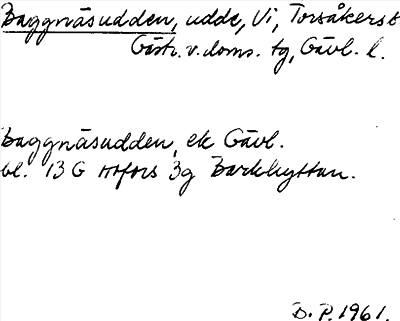 Baggnäsudden, udde, Vi, Torsåkers s
Gästr. v. doms. tg, Gävl. l.
Baggnäsudden, ek Gävl.
bl. 13 G Hofors 3g Barkhyttan.
D. P. 1961.